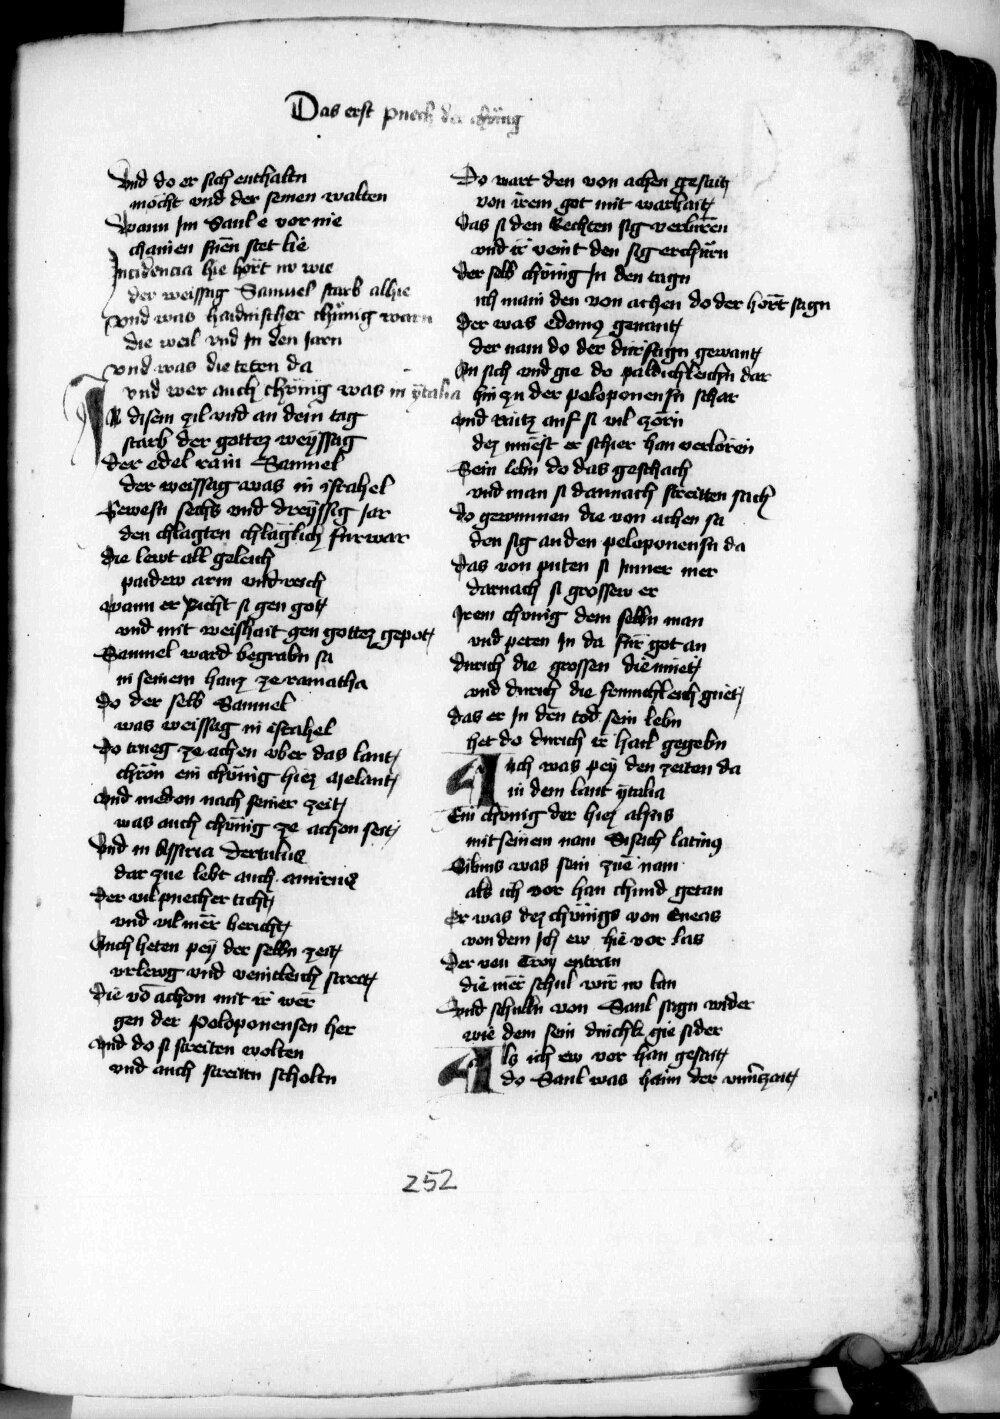 Das erst puech der chönig
Vnd do er sich enthaltn
mocht vnd der seinen walten
Wann Im Saul e vor nie
chainen fuen stet lie
Incidencia hie hort nv wie
der weissag Samuel starb alhie
vnd was haidnischer chünig warn
die weil vnd In den Jarn
vnd was die teten da
vnd wer auch chönig was in ytalia
In disem zil vnd an dem tag
starb der gottez weyssag
der edel rain Samuel
der weissag was in israhel
Gewesn sechs vnd dreyssig Jar
den chlagten chläglich furwar
die lewt all geleich
paidew arm vnd reich
wann er richt si gen got
vnd mit weishait gen gottez gepot
Samuel ward begrabn sa
in seinem hauz ze ramatha
do der selb Samuel
was weissag in israhel
do trueg ze achen vber das lant
chron ein chünig hiez melant
vnd meden nach seiner zeit
was auch chünig ze achon seit
Vnd in Assiria dertulus
dar zue lebt auch amirus
der vil puecher ticht
vnd vil mer bericht
Auch heten pey der selbn zeit
vrlewg vnd veintleich streit
die vo achon mit ir wer
gen der peloponensen her
vnd do si streiten wolten
vnd auch streitn scholtn
Do wart den von achen gesait
von irem got mit warhait
Das si den Rechten sig verlurn
vnd ir veint den sig erchurn
der selb chönig In den tagn
ich main den von achen do der hort sagn
der was edemus genant
der nam do der dürftign gewant
An sich vnd gie do paldichleichn dar
hin zu der peloponensn schar
vnd raitz auf si vil zorn
dez muest er schier han verlorn
Sein lebn do das geschach
vnd man si dannach streiten sach
do gewunnen die von achen sa
den sig an den peloponensn da
das von puten si Immer mer
darnach si grossew er
Irem chonig dem selbn man
vnd peten In da fur got an
durich die grossen diemuet
vnd durich die senichleich guet
das er In den tod sein lebn
het do durich ir hail gegebn
Auch was pey den zeiten da
in dem lant ytalia
Ein chönig der hiez albus
mit seinem nam Sisich latinus
Siluius was sein zue nam
als ich vor han chund getan
Er was dez chönigs von Eneas
von dem Ich ew hie vor las
der von Troy entran
die mer schul wir nv lan
vnd schulln von Saul sagn wider
wie dem sein dinchk gie sider
Als ich ew vor han gesait
do Saul was haim der vnuerzait
252